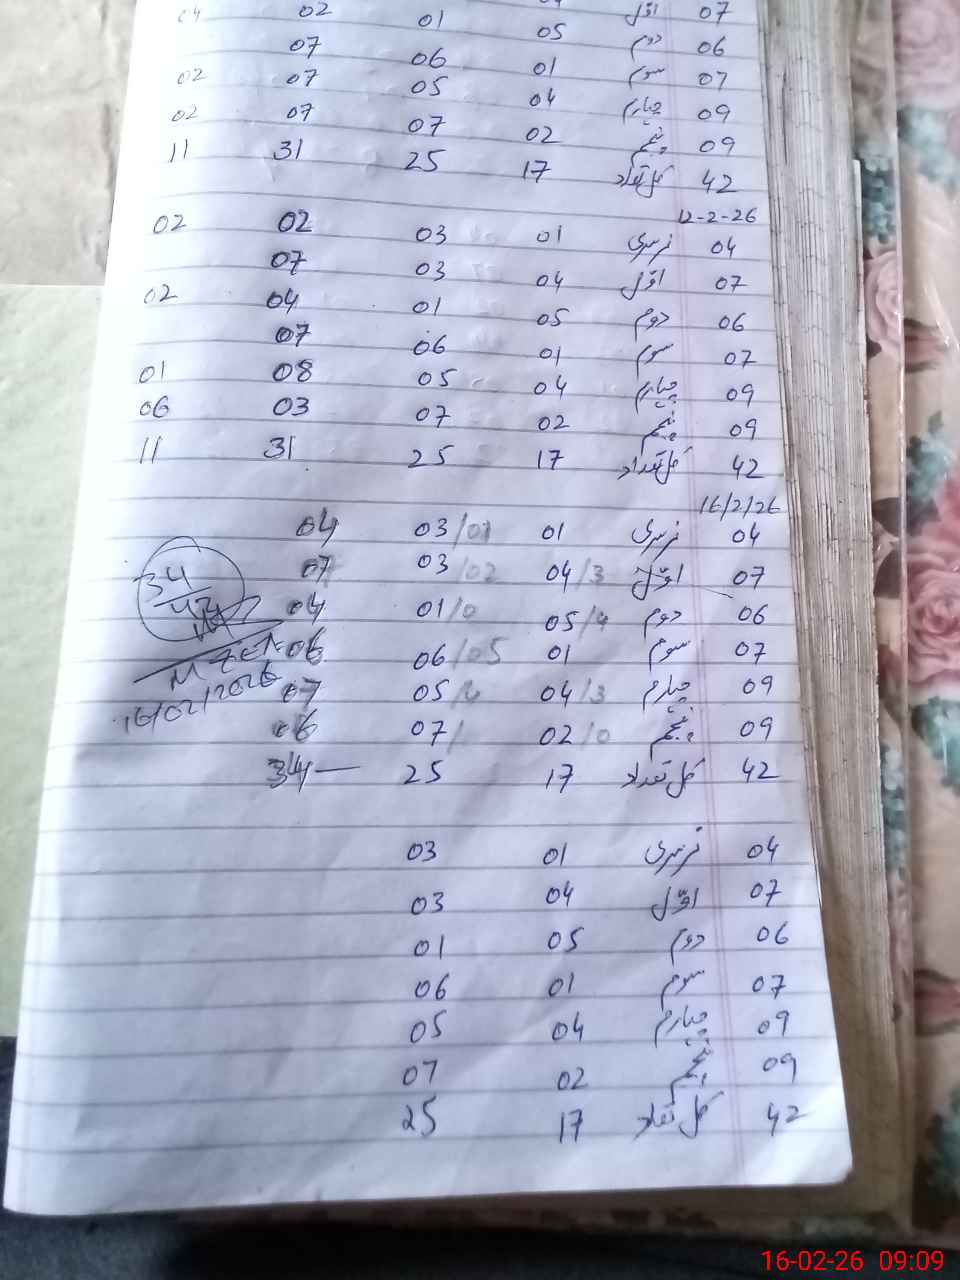 07 اوّل 02 04
06 دوم 05 01 07
07 سوم 01 06 07 02
09 چہارم 04 05 07 02
09 پنجم 02 07
42 کل تعداد 17 25 31 11
12-2-26
04 نرسری 01 03 02 02
07 اوّل 04 03 07
06 دوم 05 01 04 02
07 سوم 01 06 07
09 چہارم 04 05 08 01
09 پنجم 02 07 03 06
42 کل تعداد 17 25 31 11
16/2/26
04 نرسری 01 03/01 04
07 اوّل 04/3 03/02 07
06 دوم 05/4 01/0 04
07 سوم 01 06/05 06
09 چہارم 04/3 05/ 07
09 پنجم 02/0 07/ 06
42 کل تعداد 17 25 34
34
16/02/2026
04 نرسری 01 03
07 اوّل 04 03
06 دوم 05 01
07 سوم 01 06
09 چہارم 04 05
09 پنجم 02 07
42 کل تعداد 17 25
16-02-26 09:09